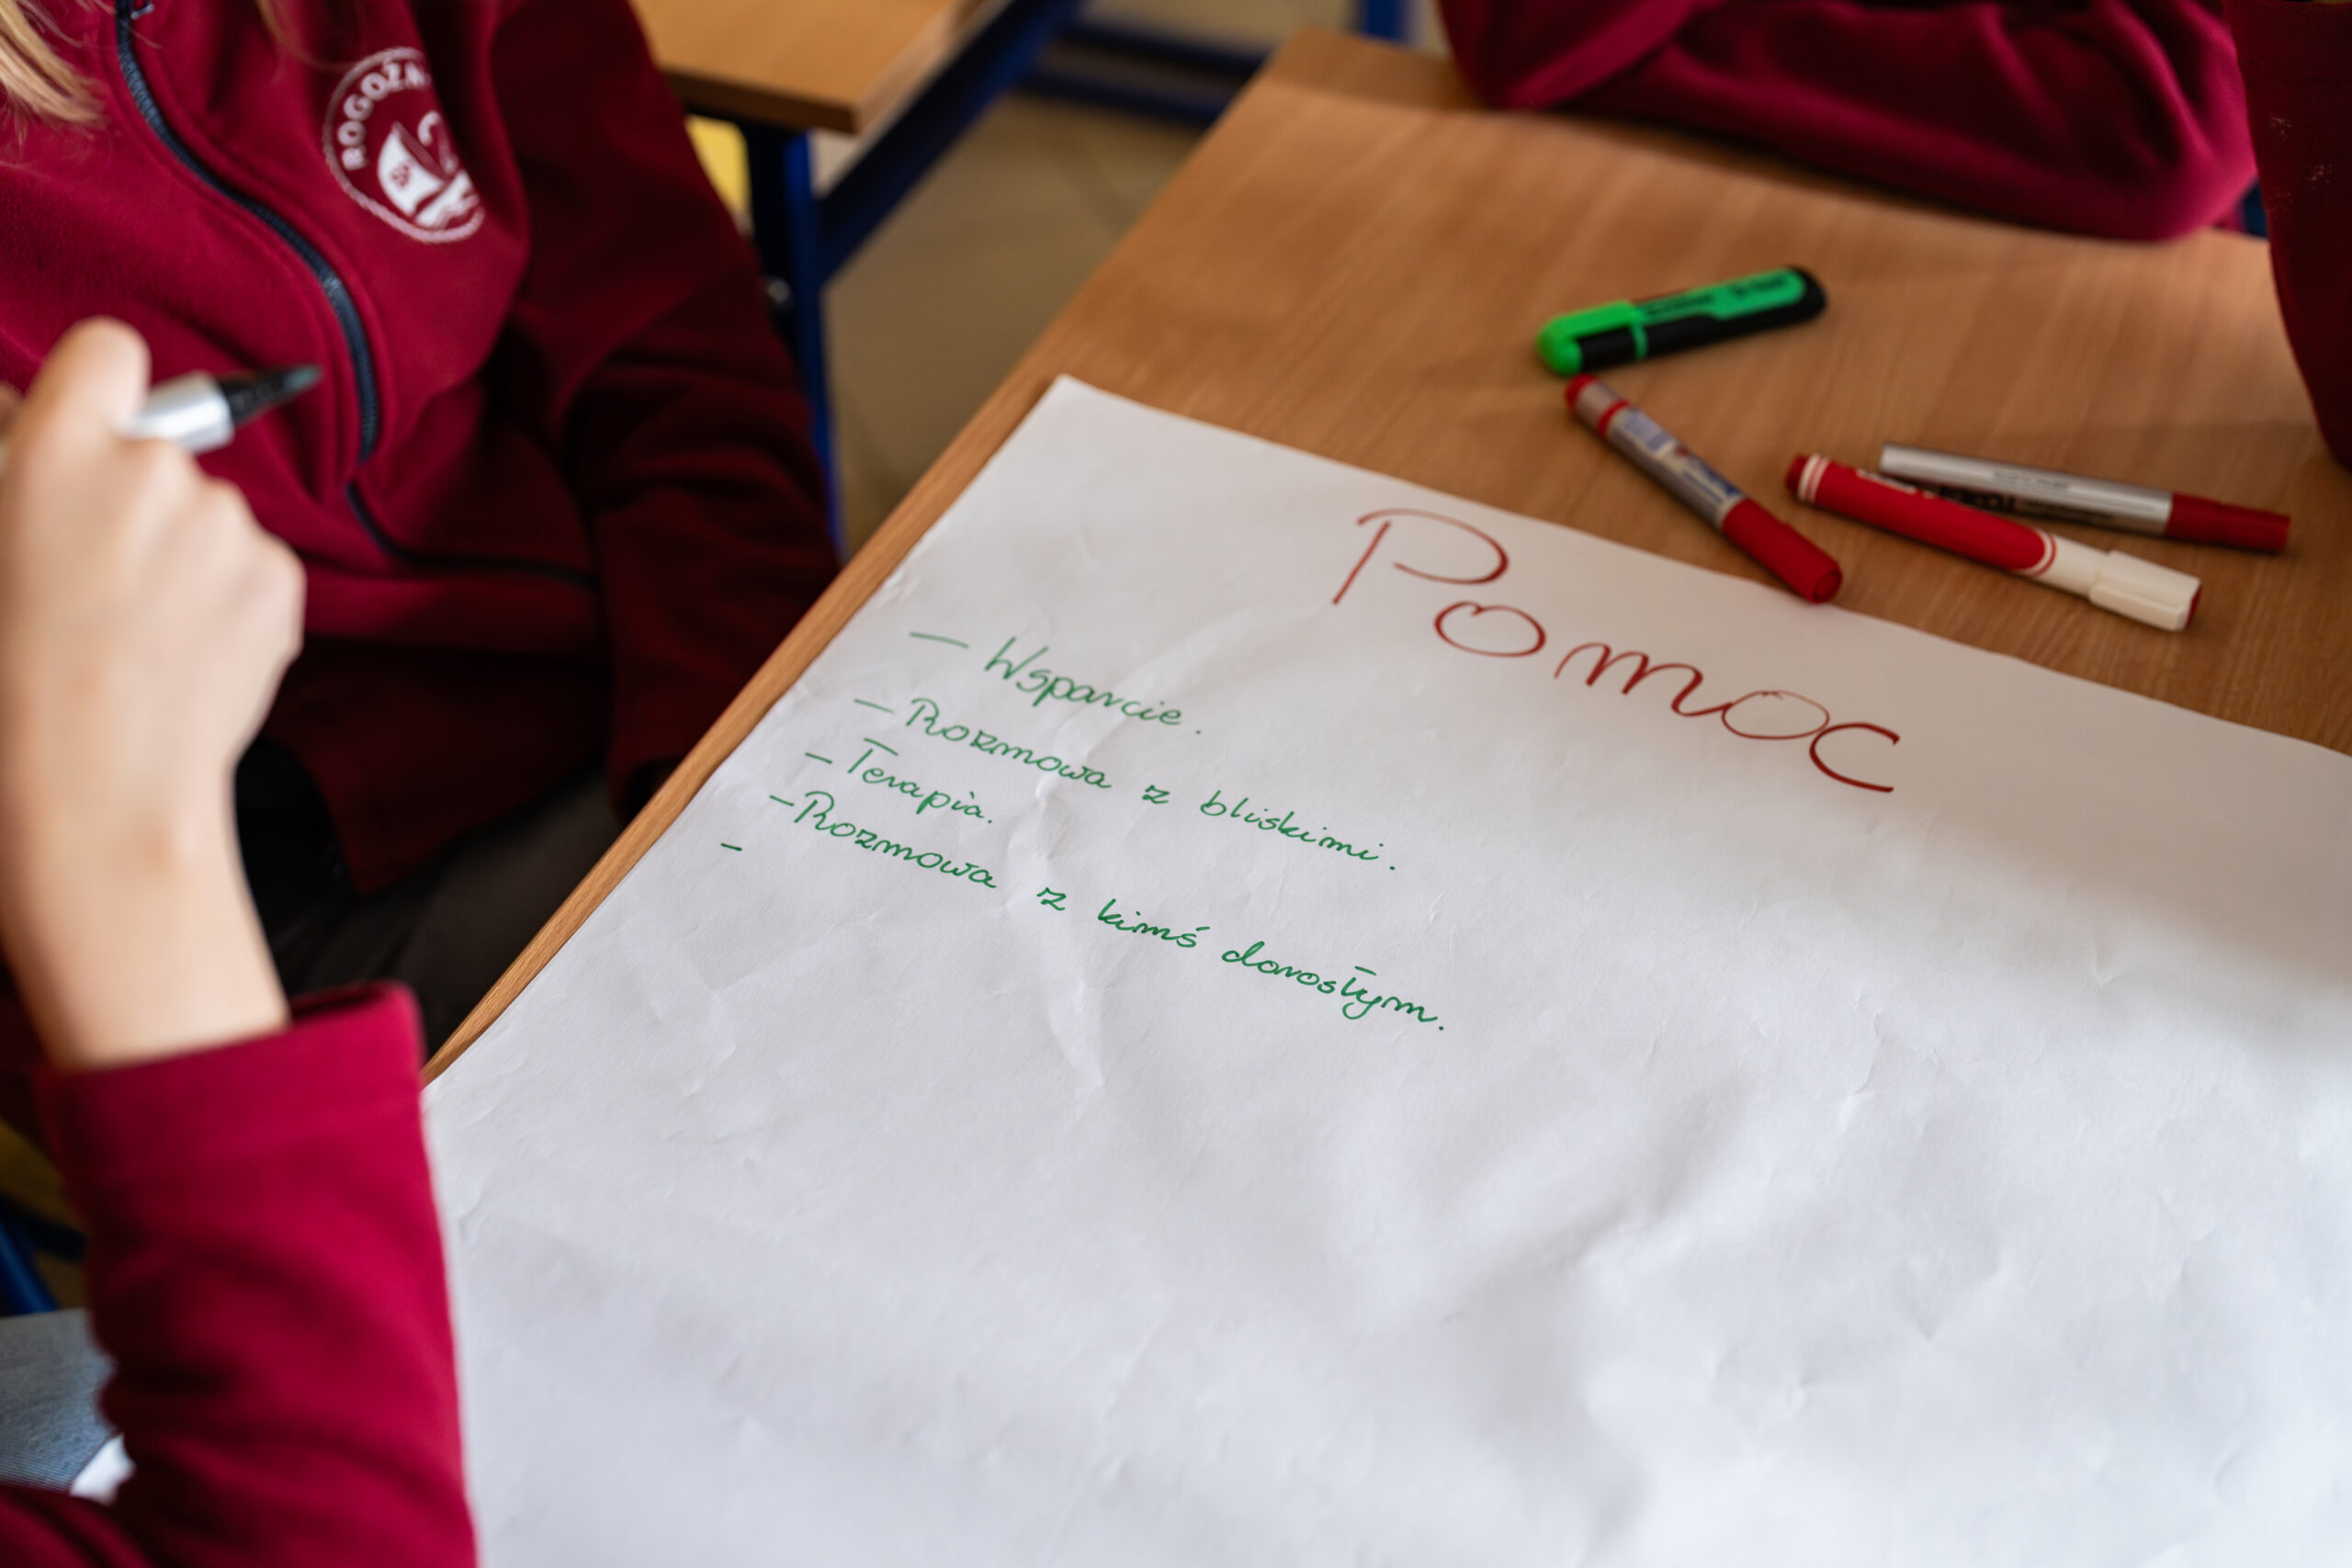 ROGOŹN
2
Pomoc
– Wsparcie.
– Rozmowa z bliskimi.
– Terapia.
– Rozmowa z kimś dorosłym.
–